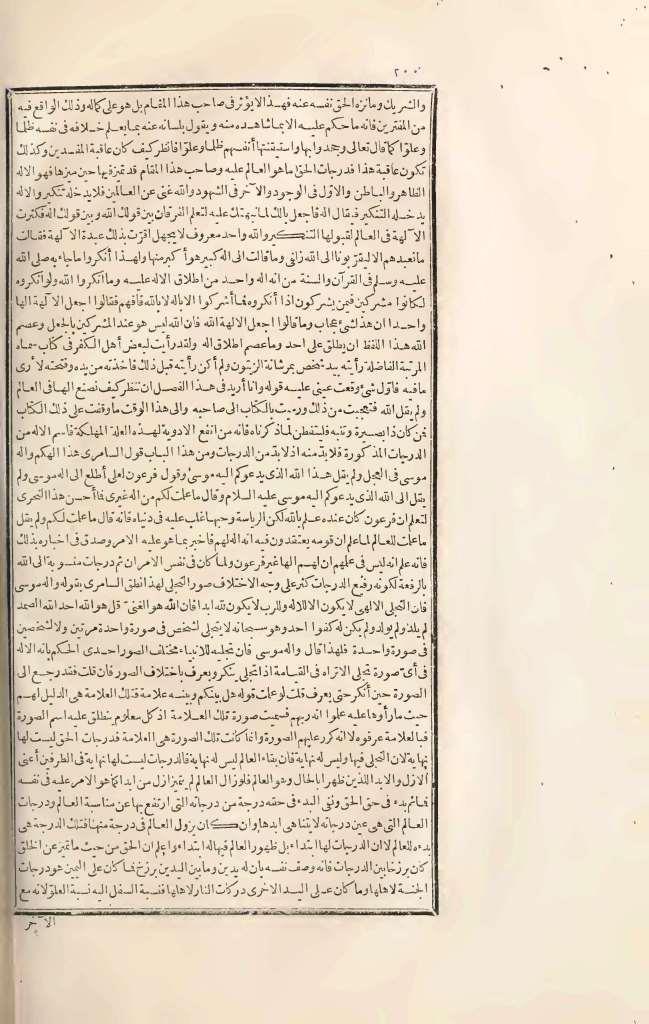 ٢٠٠
والشريك وما نزه الحق نفسه عنه فهذا لا يؤثر في صاحب هذا المقام بل هو على كماله وذلك الواقع فيه
من المفترين فانه ما حكم عليه الا بما شاهده منه ويقول بلسانه عنه بما يعلم خلافه في نفسه ظلما
وعلوا كما قال تعالى وجحدوا بها واستيقنتها أنفسهم ظلما وعلوا فانظر كيف كان عاقبة المفسدين وكذلك
تكون عاقبة هذا فدرجات الحق ما هو العالم عليه وصاحب هذا المقام قد تميز فيها حين ميزها فهو الاله
الظاهر والباطن والاول في الوجود والآخر في الشهود والله غنى عن العالمين فلا يدخله تنكير والاله
يدخله التنكير فيقال اله فاجعل بالك لما نبهتك عليه لتعلم الفرقان بين قولك الله وبين قولك اله فكثرت
الآلهة في العالم لقبولها التنكير والله واحد معروف لا يجهل أقرت بذلك عبدة الآلهة فقالت
ما نعبدهم الا ليقربونا الى الله زلفى وما قالت الى اله كبير هو أكبر منها ولهذا أنكروا ما جاء به صلى الله
عليه وسلم في القرآن والسنة من انه اله واحد من اطلاق الاله عليه وما أنكروا الله ولو أنكروه
لما كانوا مشركين فبمن يشركون اذا أنكروه فما أشركوا الا باله لا بالله فافهم فقالوا اجعل الآلهة الها
واحدا ان هذا لشئ عجاب وما قالوا اجعل الآلهة الله فان الله ليس هو عند المشركين بالجعل وعصم
الله هذا اللفظ ان يطلق على احد وما عصم اطلاق اله ولقد رأيت لبعض أهل الكفر في كتاب سماه
المرتبة الفاضلة رأيته بيد شخص بمرشانة الزيتون ولم أكن رأيته قبل ذلك فاخذته من يده وفتحته لأرى
ما فيه فاول شئ وقعت عينى عليه قوله وانا أريد في هذا الفصل ان ننظر كيف نصنع الها في العالم
ولم يقل الله فتعجبت من ذلك ورميت بالكتاب الى صاحبه والى هذا الوقت ما وقفت على ذلك الكتاب
فمن كان ذا بصيرة وتنبه فليتفطن لما ذكرناه فانه من انفع الادوية لهذه العلة المهلكة فاسم الاله من
الدرجات المذكورة فلا بد منه اذ لا بد من الدرجات ومن هذا الباب قول السامرى هذا الهكم واله
موسى في العجل ولم يقل هذا الله الذى يدعوكم اليه موسى وقول فرعون لعلى أطلع الى اله موسى ولم
يقل الى الله الذى يدعوكم اليه موسى عليه السلام وقال ما علمت لكم من اله غيرى فما أحسن هذا التحرى
لتعلم ان فرعون كان عنده علم بالله لكن الرياسة وحبها غلب عليه في دنياه فانه قال ما علمت لكم ولم يقل
ما علمت للعالم لما علم ان قومه يعتقدون فيه انه اله لهم فاخبر بما هو عليه الامر وصدق في اخباره بذلك
فانه علم انه ليس في علمهم ان لهم الها غير فرعون ولما كان في نفس الامر ان ثم درجات منسوبة الى الله
بالرفعة لكونه رفيع الدرجات كثر على وجه الاختلاف صور التجلى لهذا انطق السامرى بقوله واله موسى
فان التجلى الالهى لا يكون الا للاله وللرب لا يكون لله ابدا فان الله هو الغنى قل هو الله احد الله الصمد
لم يلد ولم يولد ولم يكن له كفوا احد وهو سبحانه لا يتجلى لشخص في صورة واحدة مرتين ولا لشخصين
في صورة واحدة فلهذا قال واله موسى فان تجليه للانبياء مختلف الصور احدى الحكم بانه الاله
في أى صورة تجلى الا تراه في القيامة اذا تجلى ينكر ويعرف باختلاف الصور فان قلت فقد رجع الى
الصورة حين أنكر حتى يعرف قلت لو علمت قوله هل بينكم وبينه علامة فتلك العلامة هي الدليل لهم
حيث ما رأوها عليه علموا انه ربهم فسميت صورة تلك العلامة اذ كل معلوم ينطلق عليه اسم الصورة
فبالعلامة عرفوه لا انه كرر عليهم الصورة وانما كانت تلك الصورة هي العلامة فدرجات الحق ليست لها
نهاية لان التجلى فيها وليس له نهاية فان بقاء العالم ليس له نهاية فالدرجات ليست لها نهاية في الطرفين أعنى
الازل والابد اللذين ظهر ابالحال وهو العالم فلو زال العالم لم يتميز ازل من ابد كما هو الامر عليه في نفسه
فما ثم بدء في حق الحق ونفى البدء في حقه درجة من درجاته التى ارتفع بها عن مناسبة العالم ودرجات
العالم التى هي عين درجاته لا يتناهى ابدها وان كان نزول العالم في درجة منها فتلك الدرجة هي
بدءه للعالم لا ان الدرجات لها ابتداء بل ظهور العالم فيها له ابتداء واعلم ان الحق من حيث ما تميز عن الخلق
كان برزخا بين الدرجات فانه وصف نفسه بان له يدين وما بين اليدين برزخ فما كان على اليمين هو درجات
الجنة لاهلها وما كان على اليد الاخرى دركات النار لاهلها فنسبة السفل اليه نسبة العلو لانه مع
الآخر